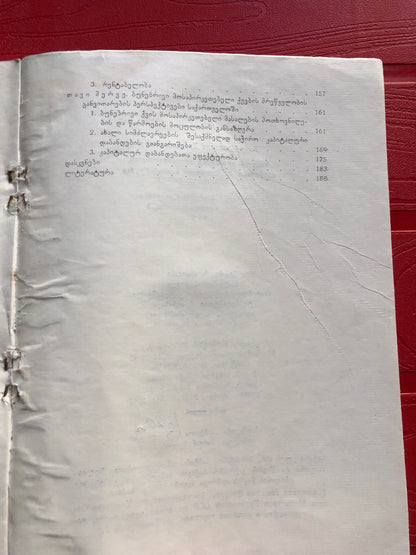 3. რენტაბელობა . . . . . . . . . . . 157
თავი მერვე. ბუნებრივი მოსაპირკეთებელი ქვების მრეწველობის
განვითარების პერსპექტივები საქართველოში . . . . 161
1. ბუნებრივი ქვის მოსაპირკეთებელი მასალების მოთხოვნილე-
ბის და წარმოების მოცულობის განსაზღვრა . . . . 161
2. ახალი სიმძლავრეების შესაქმნელად საჭირო კაპიტალური
დაბანდების გაანგარიშება . . . . . . . . 169
3. კაპიტალურ დაბანდებათა ეფექტურობა . . . . . 175
დასკვნები . . . . . . . . . . . . 183
ლიტერატურა . . . . . . . . . . . . 188